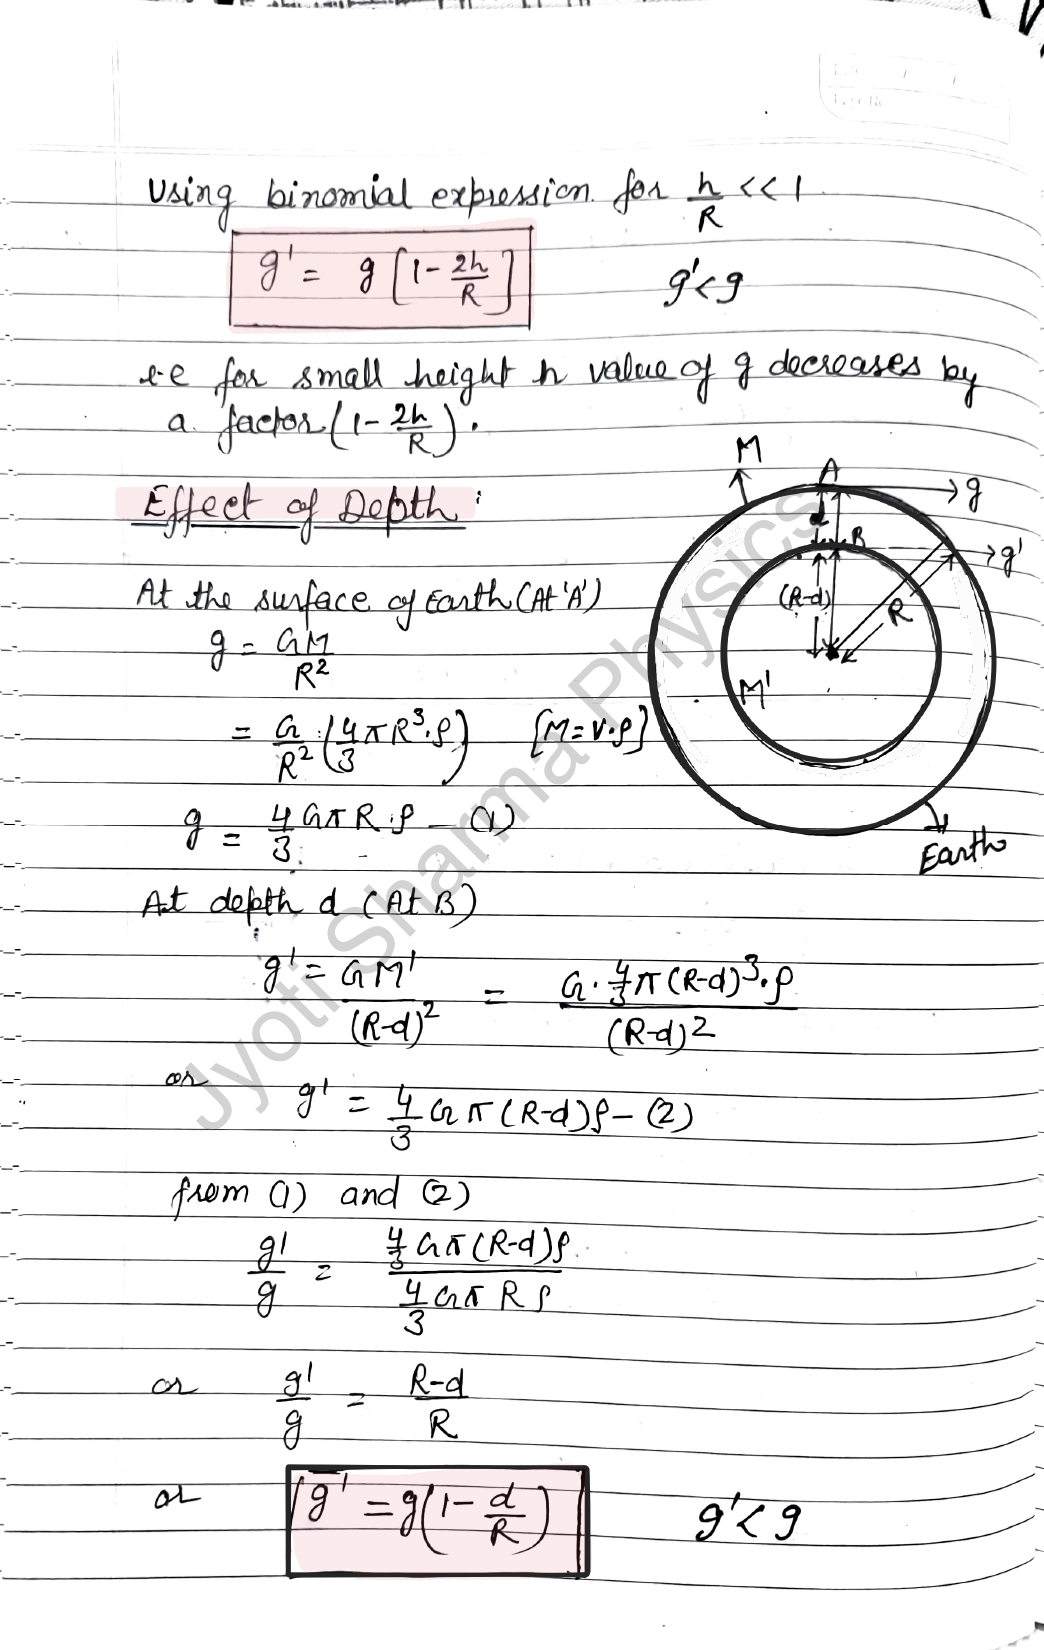 Using binomial expression. for h/R << 1
g' = g [1 - 2h/R]    g' < g
i.e for small height h value of g decreases by
a factor (1 - 2h/R).
Effect of Depth:
At the surface of Earth (At 'A')
g = GM/R²
= G/R² (4/3 πR³.ρ)    [M = V.ρ]
g = 4/3 GπR.ρ — (1)
At depth d (At B)
g' = GM'/(R-d)² = G. 4/3 π (R-d)³.ρ/(R-d)²
or g' = 4/3 Gπ (R-d)ρ — (2)
from (1) and (2)
g'/g = 4/3 Gπ (R-d)ρ / 4/3 Gπ R ρ
or g'/g = R-d/R
or g' = g(1 - d/R)    g' < g
M
A
g
d
B
g'
(R-d)
R
M'
Earth
Jyoti Sharma Physics